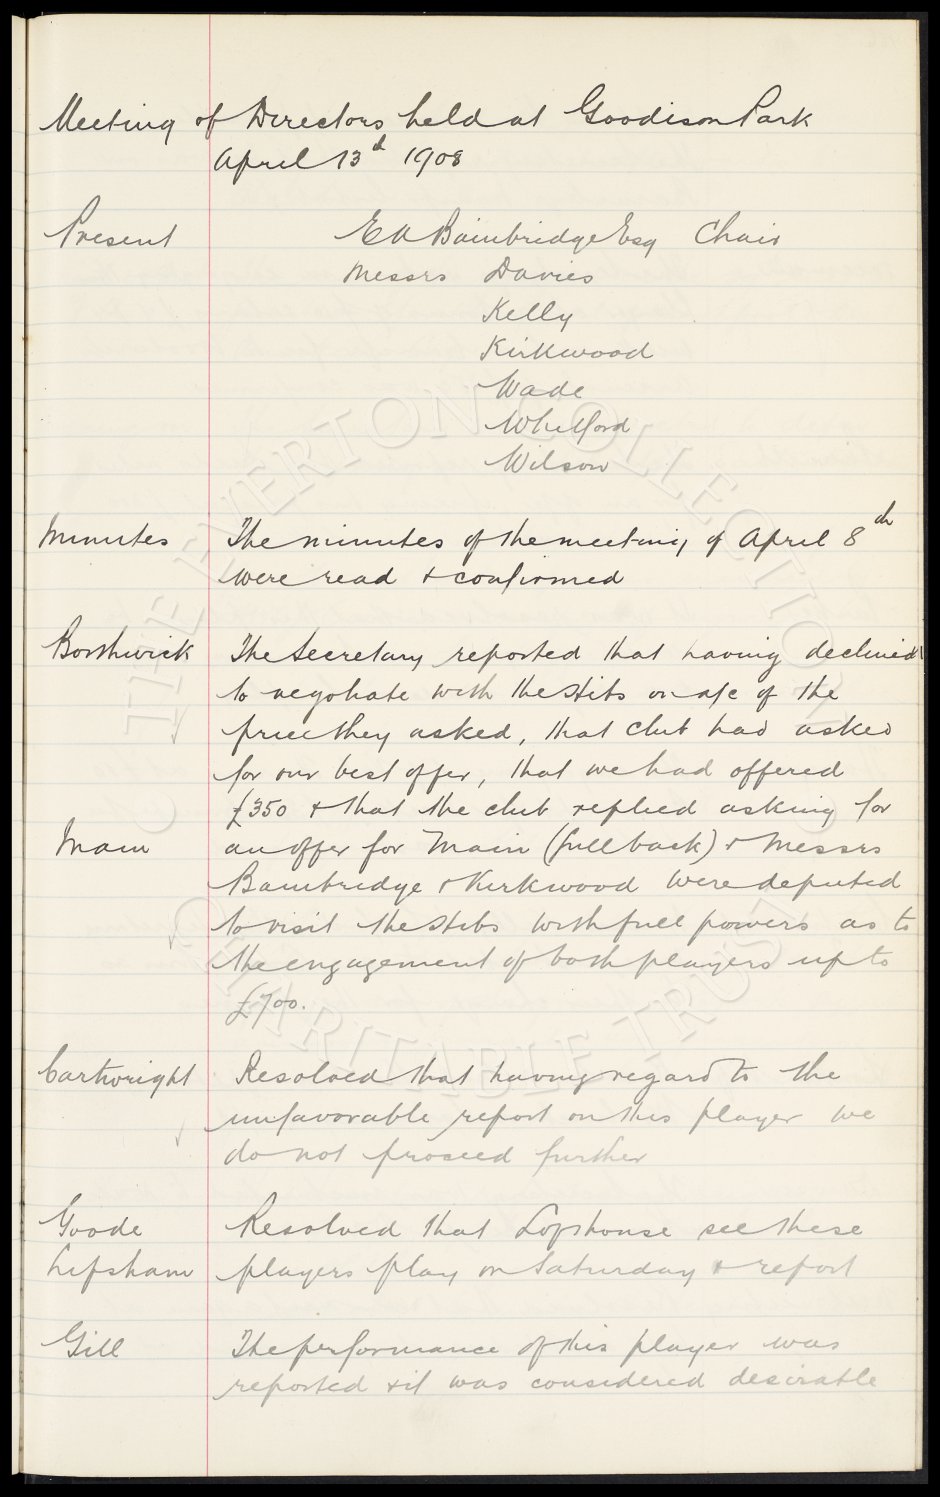 Meeting of Directors held at Goodison Park
April 13th 1908
Present E A Bainbridge Esq Chair
Messrs Davies
Kelly
Kirkwood
Wade
Whitford
Wilson
Minutes The minutes of the meeting of April 8th
were read & confirmed
Borthwick The Secretary reported that having declined
to negotiate with the Hibs on a/c of the
price they asked, that club had asked
for our best offer, that we had offered
£350 & that the club replied asking for
Main an offer for Main (fullback) & Messrs
Bainbridge & Kirkwood were deputed
to visit the Hibs with full powers as to
the engagement of both players up to
£700.
Cartwright Resolved that having regard to the
unfavorable report on this player we
do not proceed further
Goode Resolved that Lofthouse see these
Lipsham players play on Saturday & report
Gill The performance of this player was
reported & it was considered desirable
THE EVERTON COLLECTION
CHARITABLE TRUST